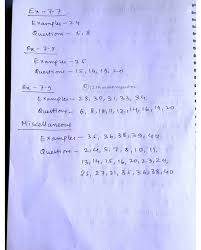 Ex - 7.7
Examples - 24
Questions - 5, 8
Ex - 7.8
Examples - 25
Questions - 15, 16, 19, 20
Ex - 7.9
Examples - 28, 30, 31, 33, 34
Questions - 6, 8, 10, 11, 12, 14, 16, 19, 20
Miscellaneous
Examples - 35, 36, 38, 39, 44
Questions - 2, 4, 5, 7, 8, 10, 11,
13, 14, 15, 16, 20, 23, 24,
25, 27, 31, 35, 36, 38, 40